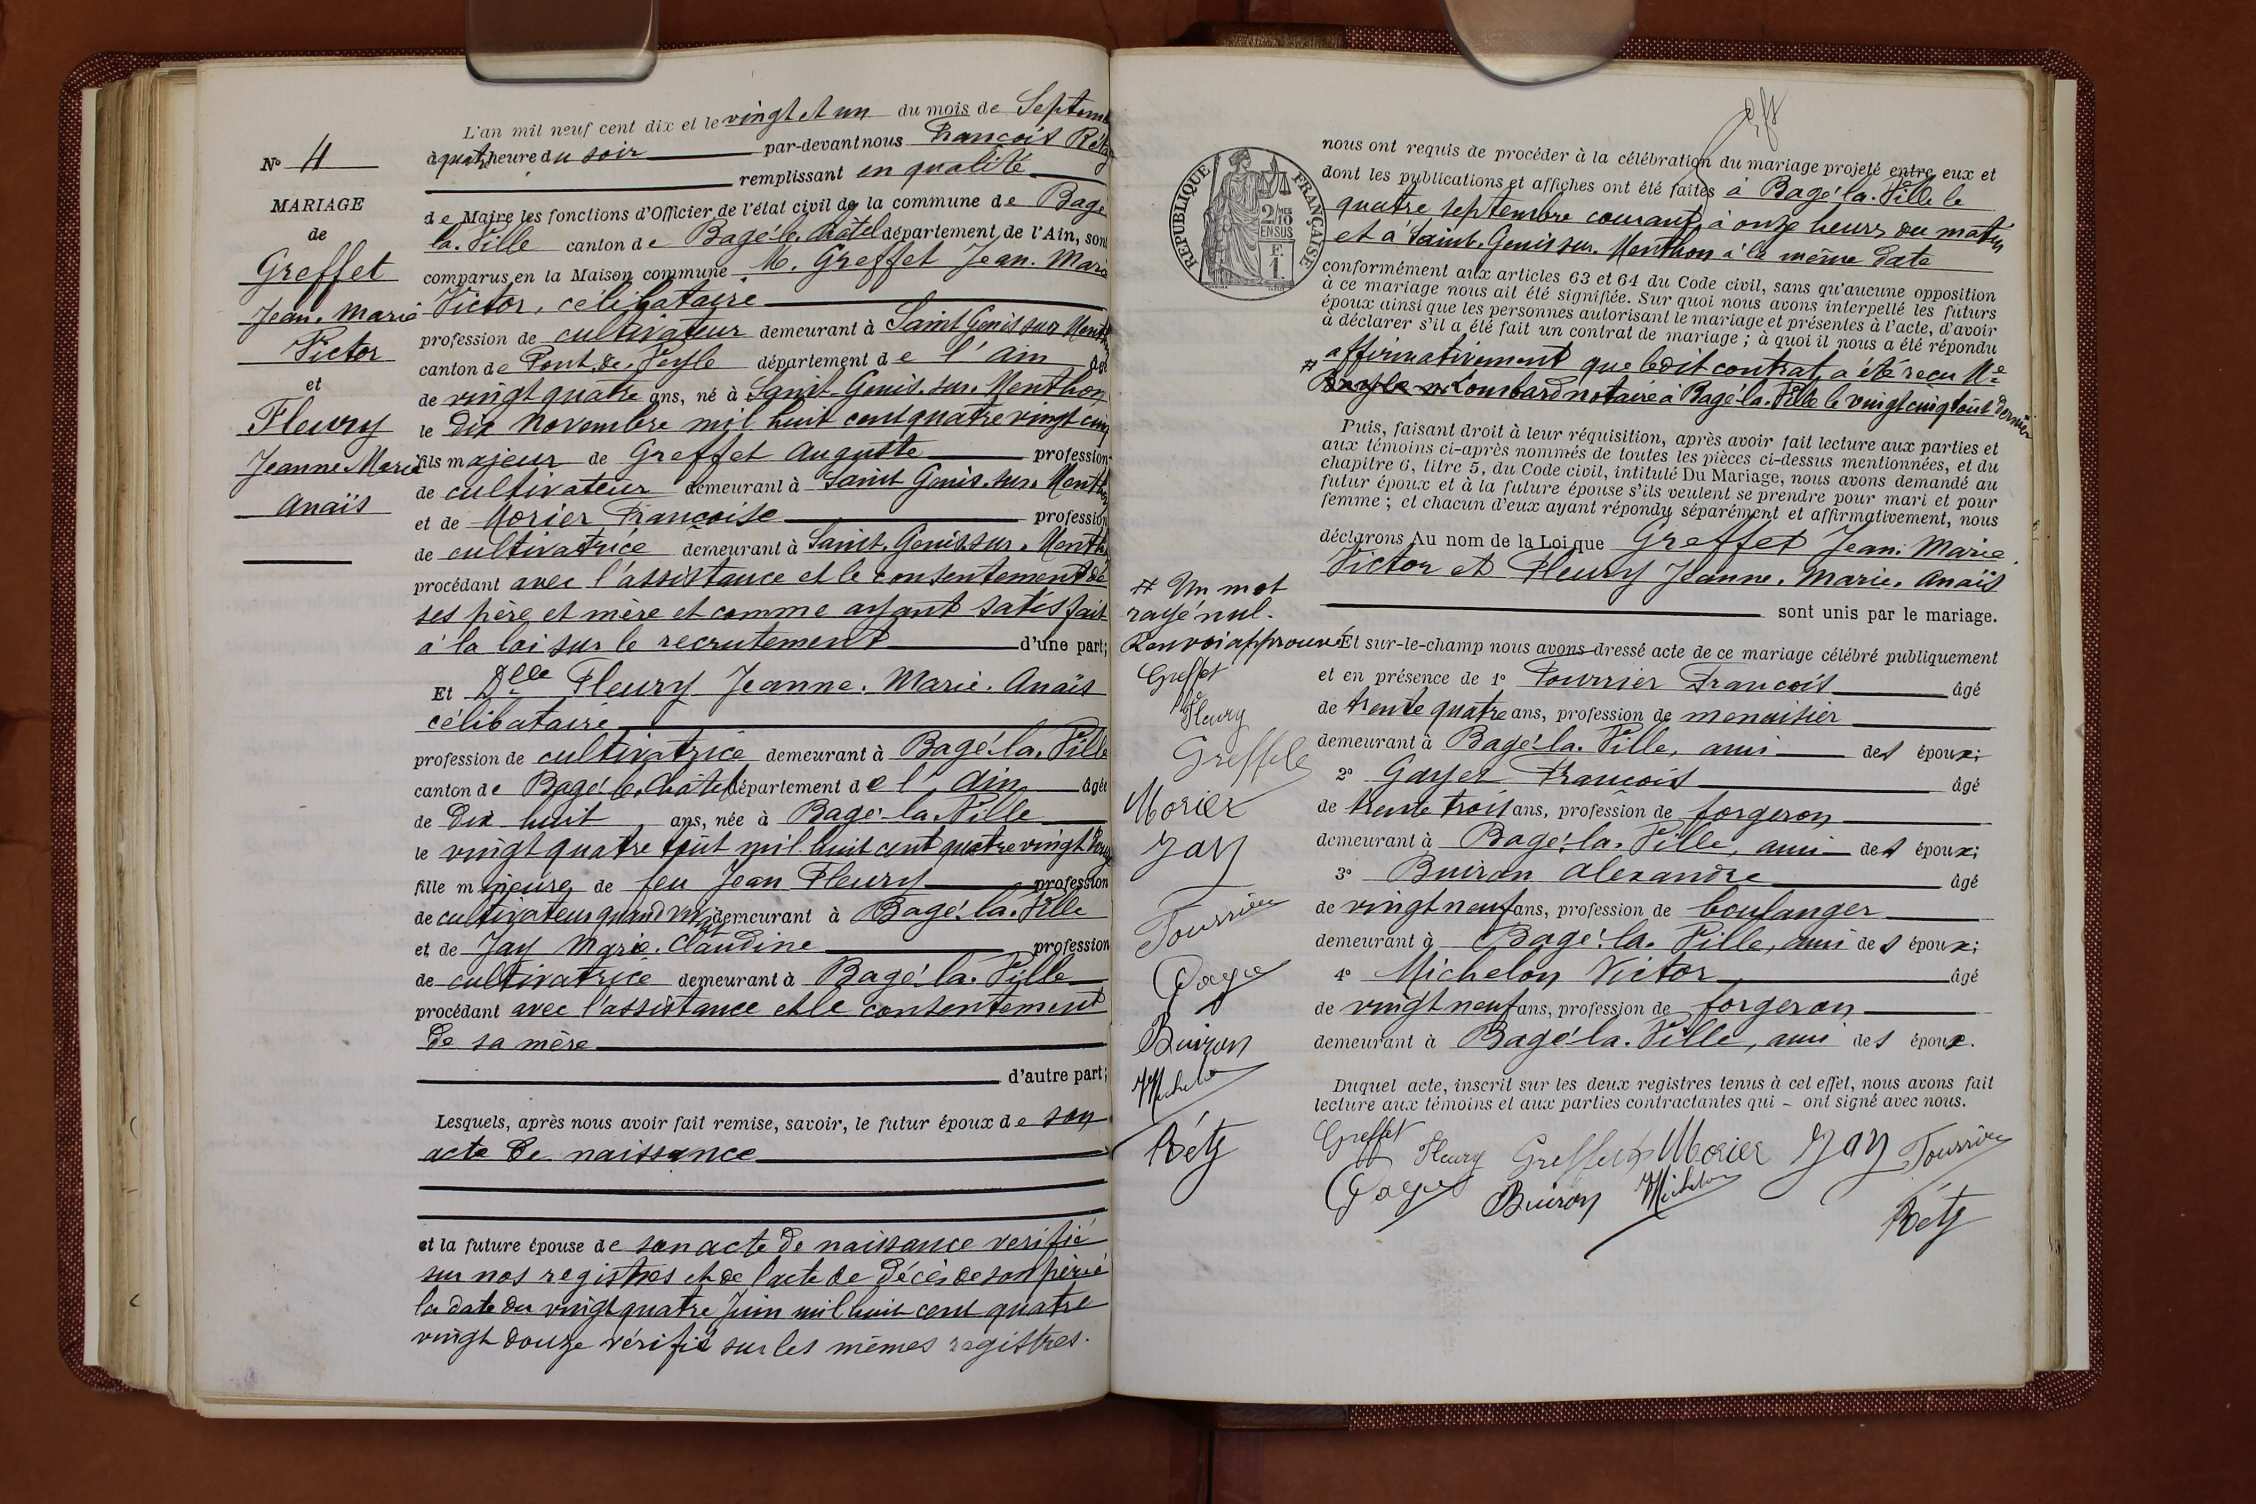 N° 4
MARIAGE
de
Greffet
Jean. Marie
Victor
et
Fleury
Jeanne. Marie
Anaïs
L'an mil neuf cent dix et le vingt et un du mois de Septem
à quatre heure du soir par-devant nous François Réty
remplissant en qualité
de Maire les fonctions d'Officier de l'état civil de la commune de Bagé
la. Ville canton de Bagé-le. Châtel département de l'Ain, sont
comparus en la Maison commune M. Greffet Jean. Marie
Victor, célibataire
profession de cultivateur demeurant à Saint Genis sur Menthon
canton de Pont. de. Veyle département de l'Ain âgé
de vingt quatre ans, né à Saint-Genis. sur. Menthon
le dix Novembre mil huit cent quatre vingt cinq
fils majeur de Greffet Auguste profession
de cultivateur demeurant à Saint Genis. sur. Menthon
et de Morier Françoise profession
de cultivatrice demeurant à Saint. Genis. sur. Menth
procédant avec l'assistance et le consentement de
ses père et mère et comme ayant satisfait
à la loi sur le recrutement d'une part;
Et Dlle Fleury Jeanne. Marie. Anaïs
célibataire
profession de cultivatrice demeurant à Bagé-la. Ville
canton de Bagé-le. Châtel département de l'Ain âgée
de dix huit ans, née à Bagé-la. Ville
le vingt quatre août mil huit cent quatre vingt onze
fille mineure de feu Jean Fleury profession
de cultivateur quand vivait demeurant à Bagé. la. Ville
et de Jay Marie. Claudine profession
de cultivatrice demeurant à Bagé-la. Ville
procédant avec l'assistance et le consentement
de sa mère
d'autre part;
Lesquels, après nous avoir fait remise, savoir, le futur époux de son
acte de naissance
et la future épouse de son acte de naissance verifié
sur nos registres et de l'acte de décès de son père à
la date du vingt quatre Juin mil huit cent quatre
vingt douze vérifié sur les mêmes registres.
RÉPUBLIQUE FRANÇAISE
2/10 EN SUS
F. 1.
nous ont requis de procéder à la célébration du mariage projeté entre eux et
dont les publications et affiches ont été faites à Bagé-la. Ville le
quatre septembre courant, à onze heures du matin
et à Saint. Genis sur. Menthon à la même date
conformément aux articles 63 et 64 du Code civil, sans qu'aucune opposition
à ce mariage nous ait été signifiée. Sur quoi nous avons interpellé les futurs
époux ainsi que les personnes autorisant le mariage et présentes à l'acte, d'avoir
à déclarer s'il a été fait un contrat de mariage; à quoi il nous a été répondu
affirmativement que ledit contrat a été reçu Me
Lombard notaire à Bagé-la. Ville le vingt cinq août dernier
Puis, faisant droit à leur réquisition, après avoir fait lecture aux parties et
aux témoins ci-après nommés de toutes les pièces ci-dessus mentionnées, et du
chapitre 6, titre 5, du Code civil, intitulé Du Mariage, nous avons demandé au
futur époux et à la future épouse s'ils veulent se prendre pour mari et pour
femme; et chacun d'eux ayant répondu séparément et affirmativement, nous
déclarons Au nom de la Loi que Greffet Jean. Marie.
Victor et Fleury Jeanne. Marie. Anaïs
sont unis par le mariage.
Un mot
rayé nul.
Renvoi approuvé
Greffet
Fleury
Greffet
Morier
Jay
Fourrier
Gayet
Buiron
Michelon
Réty
Et sur-le-champ nous avons dressé acte de ce mariage célébré publiquement
et en présence de 1° Fourrier François âgé
de trente quatre ans, profession de menuisier
demeurant à Bagé-la. Ville, ami des époux;
2° Gayet François âgé
de trente trois ans, profession de forgeron
demeurant à Bagé-la. Ville, ami des époux;
3° Buiron Alexandre âgé
de vingt neuf ans, profession de boulanger
demeurant à Bagé. la. Ville, ami des époux;
4° Michelon Victor âgé
de vingt neuf ans, profession de forgeron
demeurant à Bagé-la. Ville, ami des époux.
Duquel acte, inscrit sur les deux registres tenus à cet effet, nous avons fait
lecture aux témoins et aux parties contractantes qui – ont signé avec nous.
Greffet Fleury Greffet Morier Jay Fourrier
Gayet Buiron Michelon
Réty